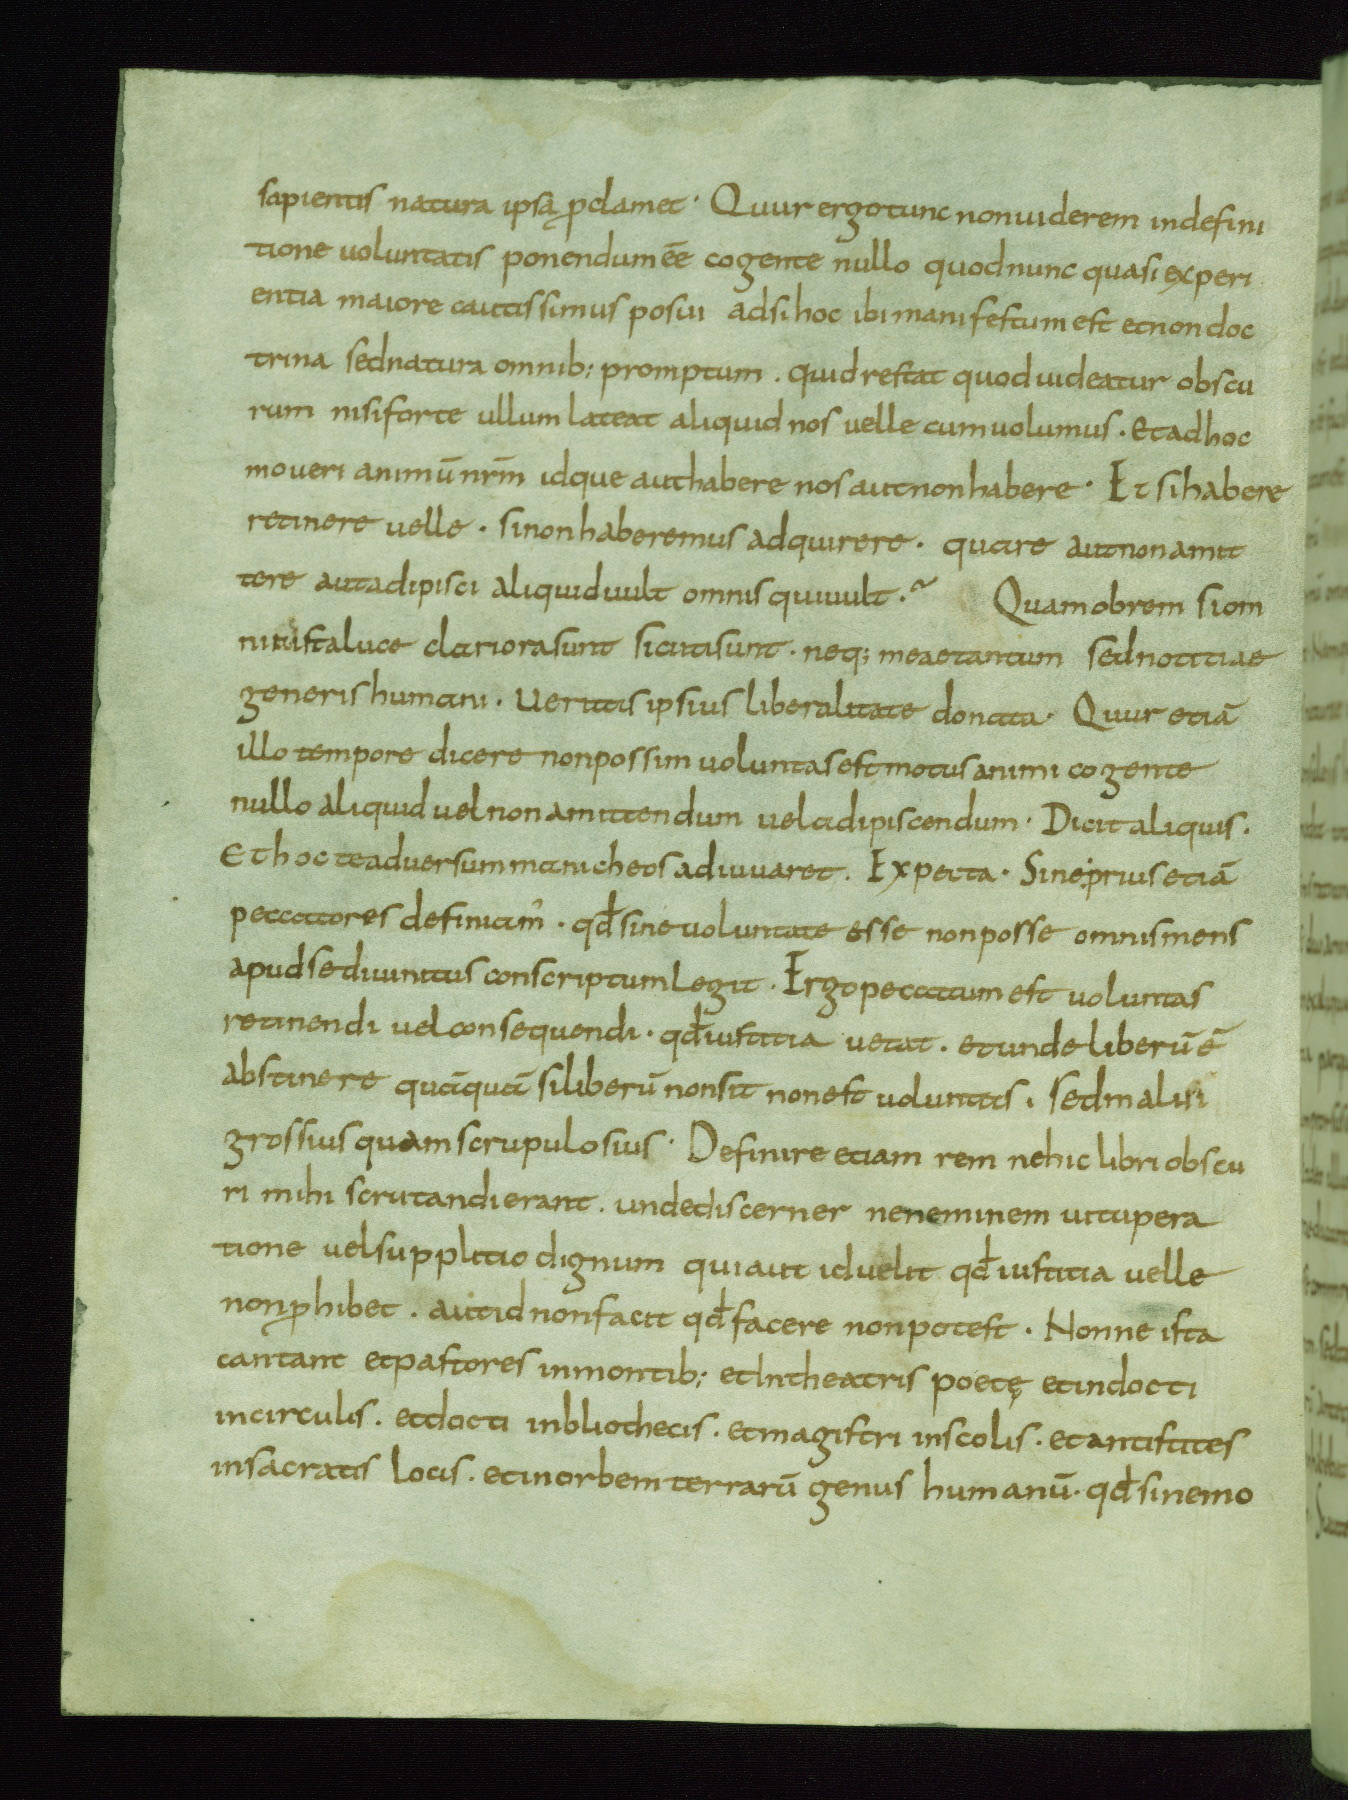 sapientis natura ipsą ꝓclamet · Quur ergo tunc non uiderem in defini
tione uoluntatis ponendum eē cogente nullo quod nunc quasi experi
entia maiore cautissimus posui ad si hoc ibi manifestum est et non doc
trina sed natura omnib; promptum . quid restat quod uideatur obscu
rum nisi forte ullum lateat aliquid nos uelle cum uolumus . Et ad hoc
moueri animū nrm̄ idque aut habere nos aut non habere · Et si habere
retinere uelle · si non haberemus adquirere · quare aut non amit
tere aut adipisci aliquid uult omnis qui uult . Quamobrem si om
ni ista luce clariora sunt sicuti sunt · neq; meae tantum sed notitiae
generis humani · Ueritatis ipsius liberalitate donata · Quur etiā
illo tempore dicere non possim uoluntas est motus animi cogente
nullo aliquid uel non amittendum uel adipiscendum · Dicit aliquis .
Et hoc te aduersum manicheos adiuuaret . Expecta · Sine prius etiā
peccatores definiam̄ · qđ sine uoluntate esse non posse omnis mens
apud se diuinitus conscriptum legit · Ergo peccatum est uoluntas
retinendi uel consequendi · qđ iustitia uetat . et unde liberū ē
abstinere quāquā si liberū non sit non est uoluntas . sed malui
grossius quam scrupulosius · Definire etiam rem nehic libri obscu
ri mihi scrutandi erant . unde discerner neneminem uitupera
tione uel supplitio dignum qui aut id uelit qđ iustitia uelle
non ꝓhibet . aut id non facit qđ facere non potest . Nonne ista
cantant et pastores in montib; et In theatris poetę et indocti
in circulis . et docti in bliothecis . et magistri in scolis · et antistites
in sacratis locis . et in orbem terrarū genus humanū · qđ si nemo